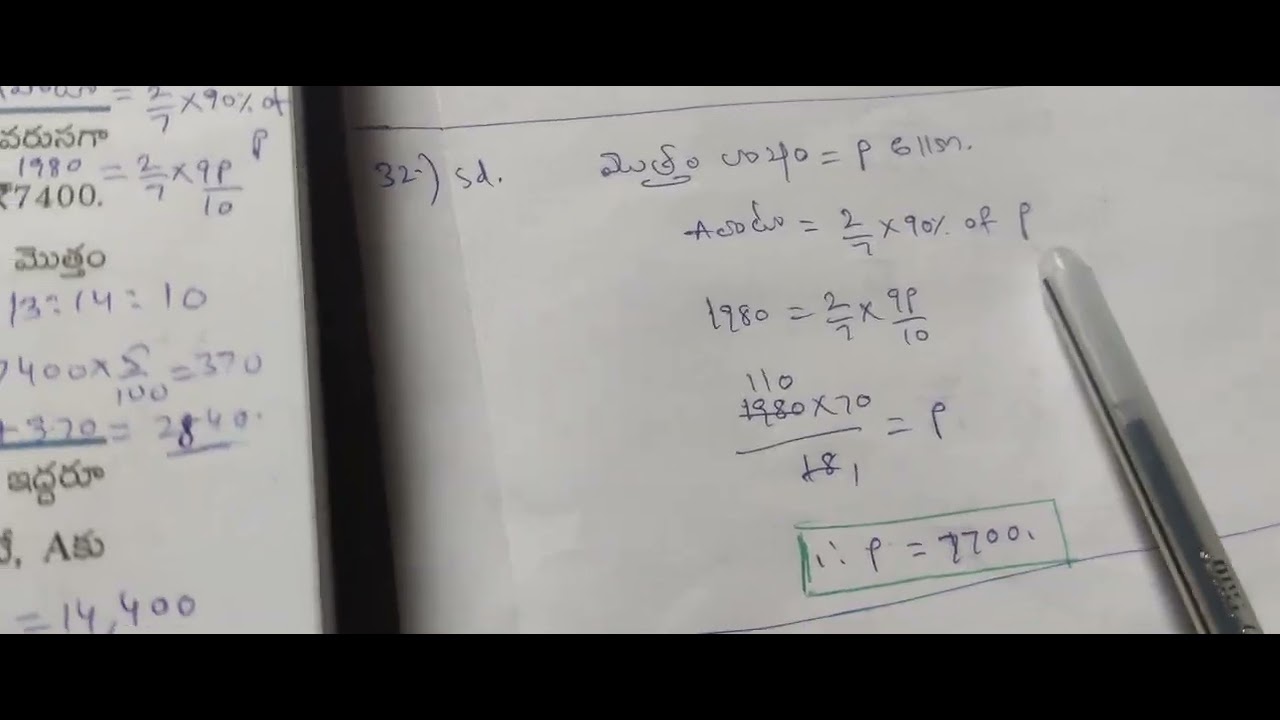 = 2/7 × 90% of
వరుసగా P
1980 = 2/7 × 9P/10
₹7400.
మొత్తం
13 : 14 : 10
7400 × 5/100 = 370
+ 370 = 2840.
ఇద్దరూ
Aకు
= 14,400
32.) sd. మొత్తం లాభం = P
A వాటా = 2/7 × 90% of P
1980 = 2/7 × 9P/10
110
1980 × 70 / 18 1 = P
∴ P = 7700.